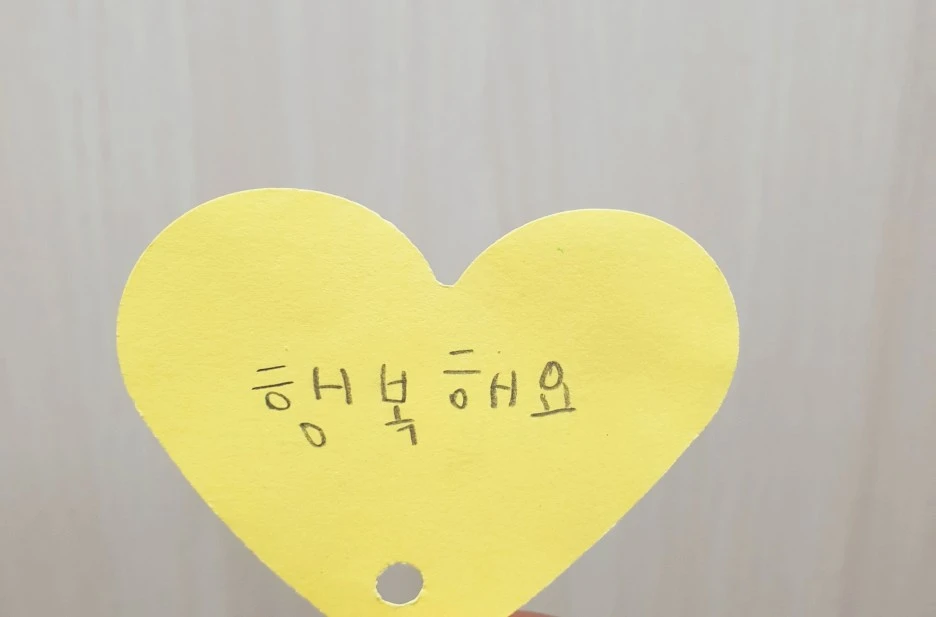 행복해요